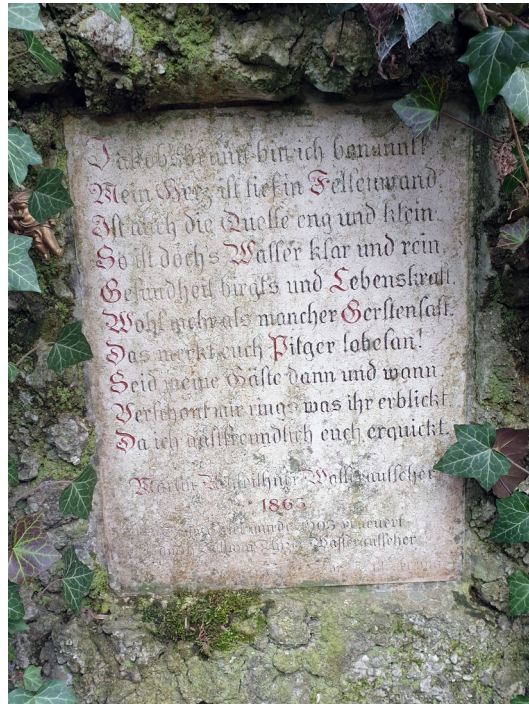 Jakobsbrunn bin ich benannt
Mein Herz ist tief in Felsenwand.
Ist auch die Quelle eng und klein.
So ist doch's Wasser klar und rein.
Gesundheit birgt's und Lebenskraft.
Wohl mehr als mancher Gerstensaft.
Das merkt euch Pilger lobesan!
Seid meine Gäste dann und wann
Verschont mir rings was ihr erblickt
Da ich gastfreundlich euch erquickt.
Martin Wasseraufseher
1865
wurde 1905 erneuert
durch Wasseraufseher